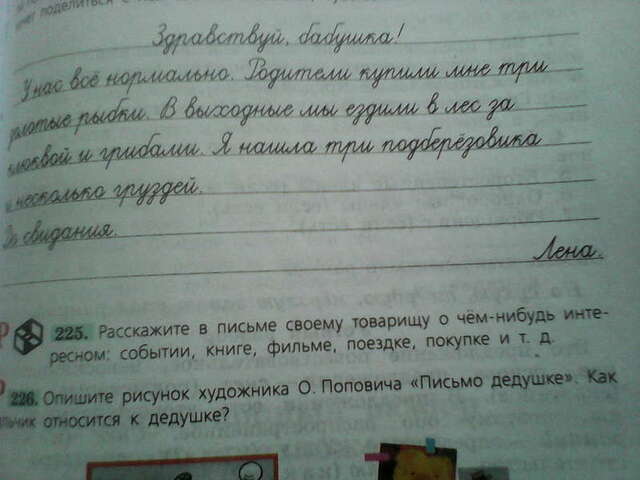 поделиться с
Здравствуй, бабушка!
У нас всё нормально. Родители купили мне три
золотые рыбки. В выходные мы ездили в лес за
клюквой и грибами. Я нашла три подберёзовика
и несколько груздей.
До свидания.
Лена.
225. Расскажите в письме своему товарищу о чём-нибудь инте-
ресном: событии, книге, фильме, поездке, покупке и т. д.
226. Опишите рисунок художника О. Поповича «Письмо дедушке». Как
льчик относится к дедушке?